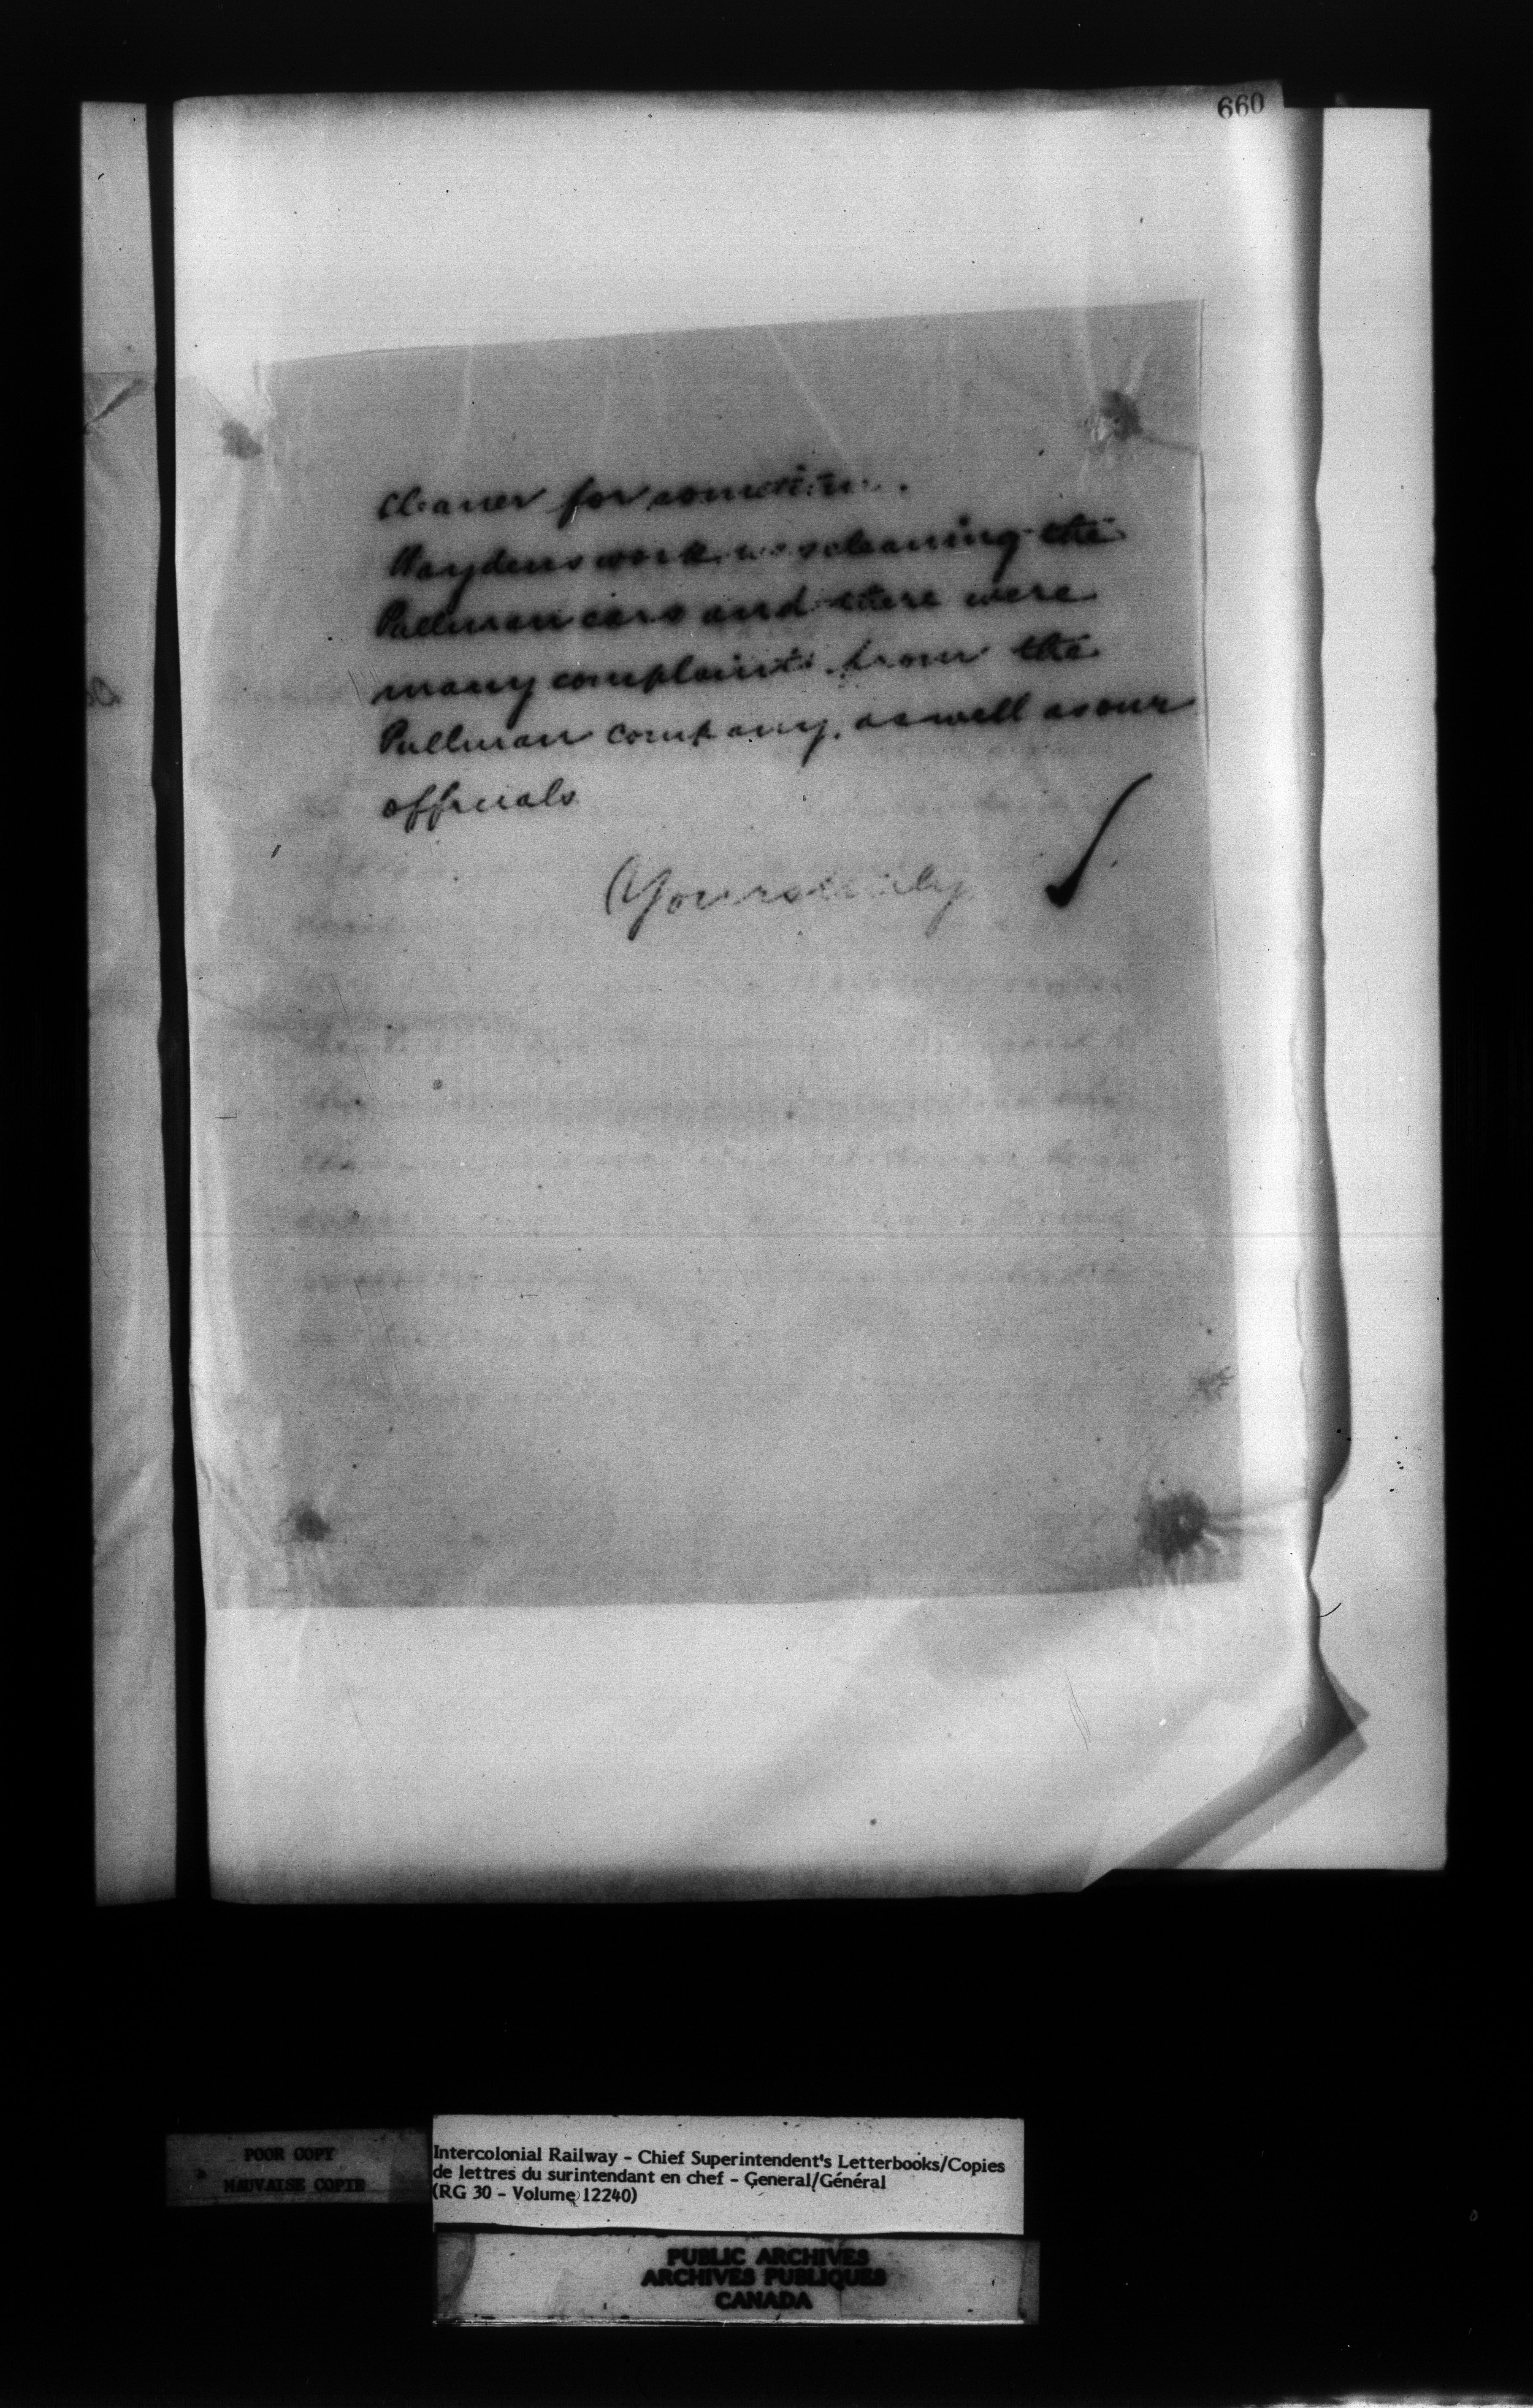 660
cleaner for sometime.
Haydens work was cleaning the
Pullman cars and there were
many complaints from the
Pullman company, as well as our
officials
Yours truly
POOR COPY
MAUVAISE COPIE
Intercolonial Railway - Chief Superintendent's Letterbooks/Copies
de lettres du surintendant en chef - General/Général
(RG 30 - Volume 12240)
PUBLIC ARCHIVES
ARCHIVES PUBLIQUES
CANADA